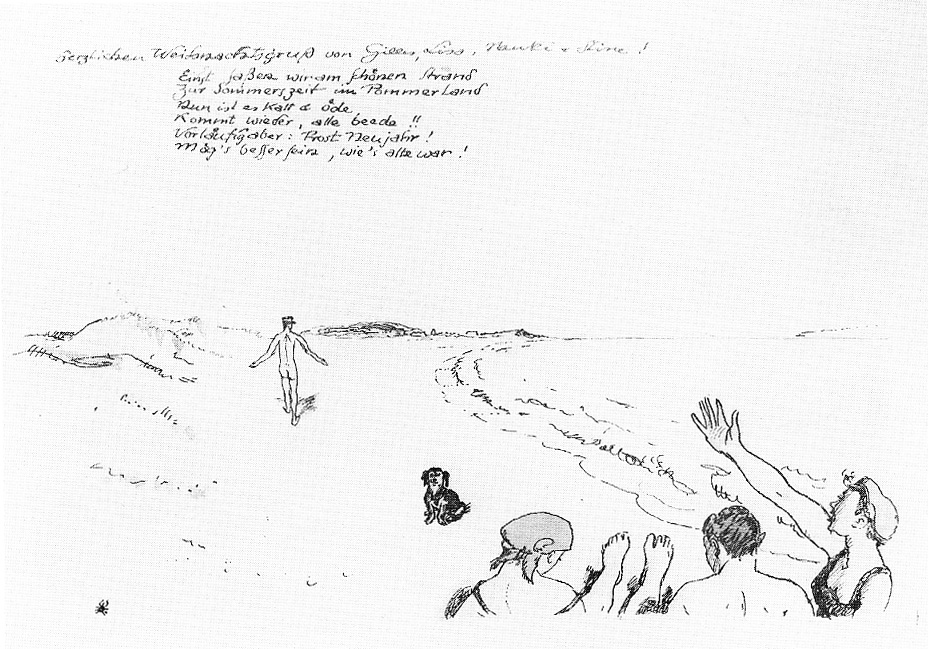 Herzlichen Weihnachtsgruß von Gilles,
Einst saßen wir am schönen Strand
Zur Sommerszeit im Pommerland
Nun ist es kalt & öde
Kommt wieder, alle beede !!
Vorläufig aber : Prost Neujahr !
Mög's besser sein, wie's alte war !